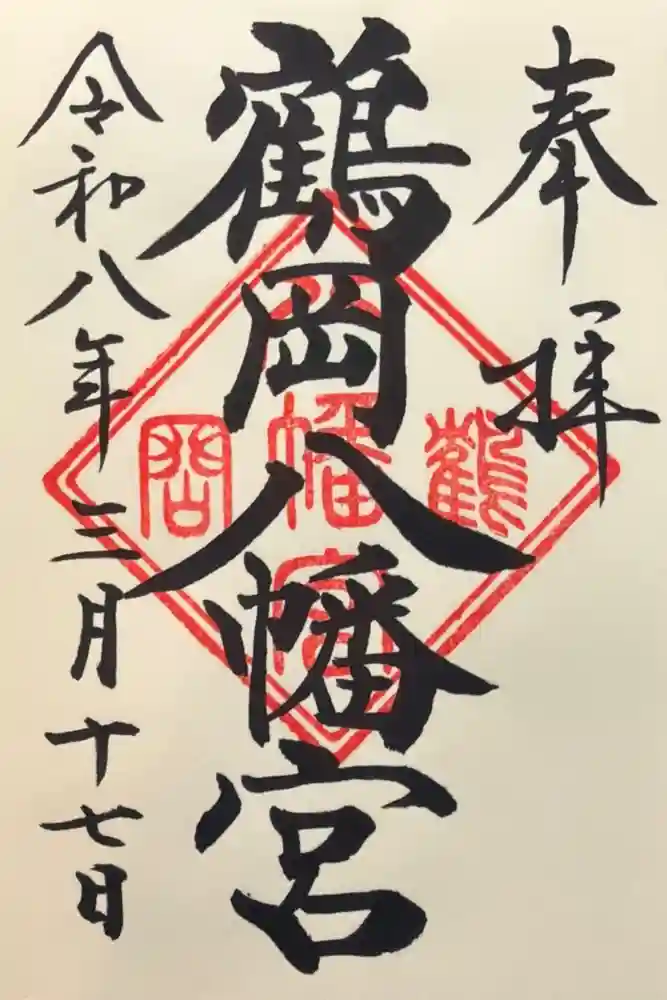 奉拝
鶴岡八幡宮
令和八年三月十七日
鶴
八幡宮
岡